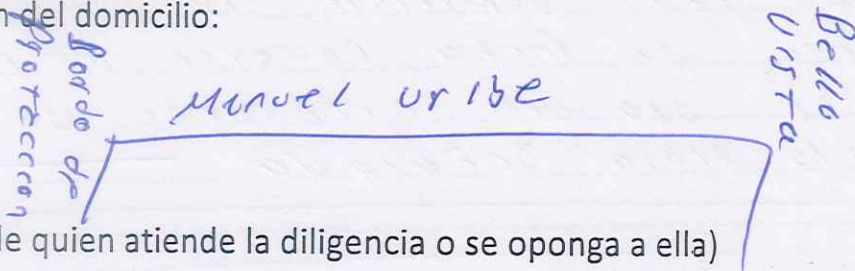 n del domicilio:
Bordo de
Protección
Manuel Uribe
Bella
Vista
de quien atiende la diligencia o se oponga a ella)